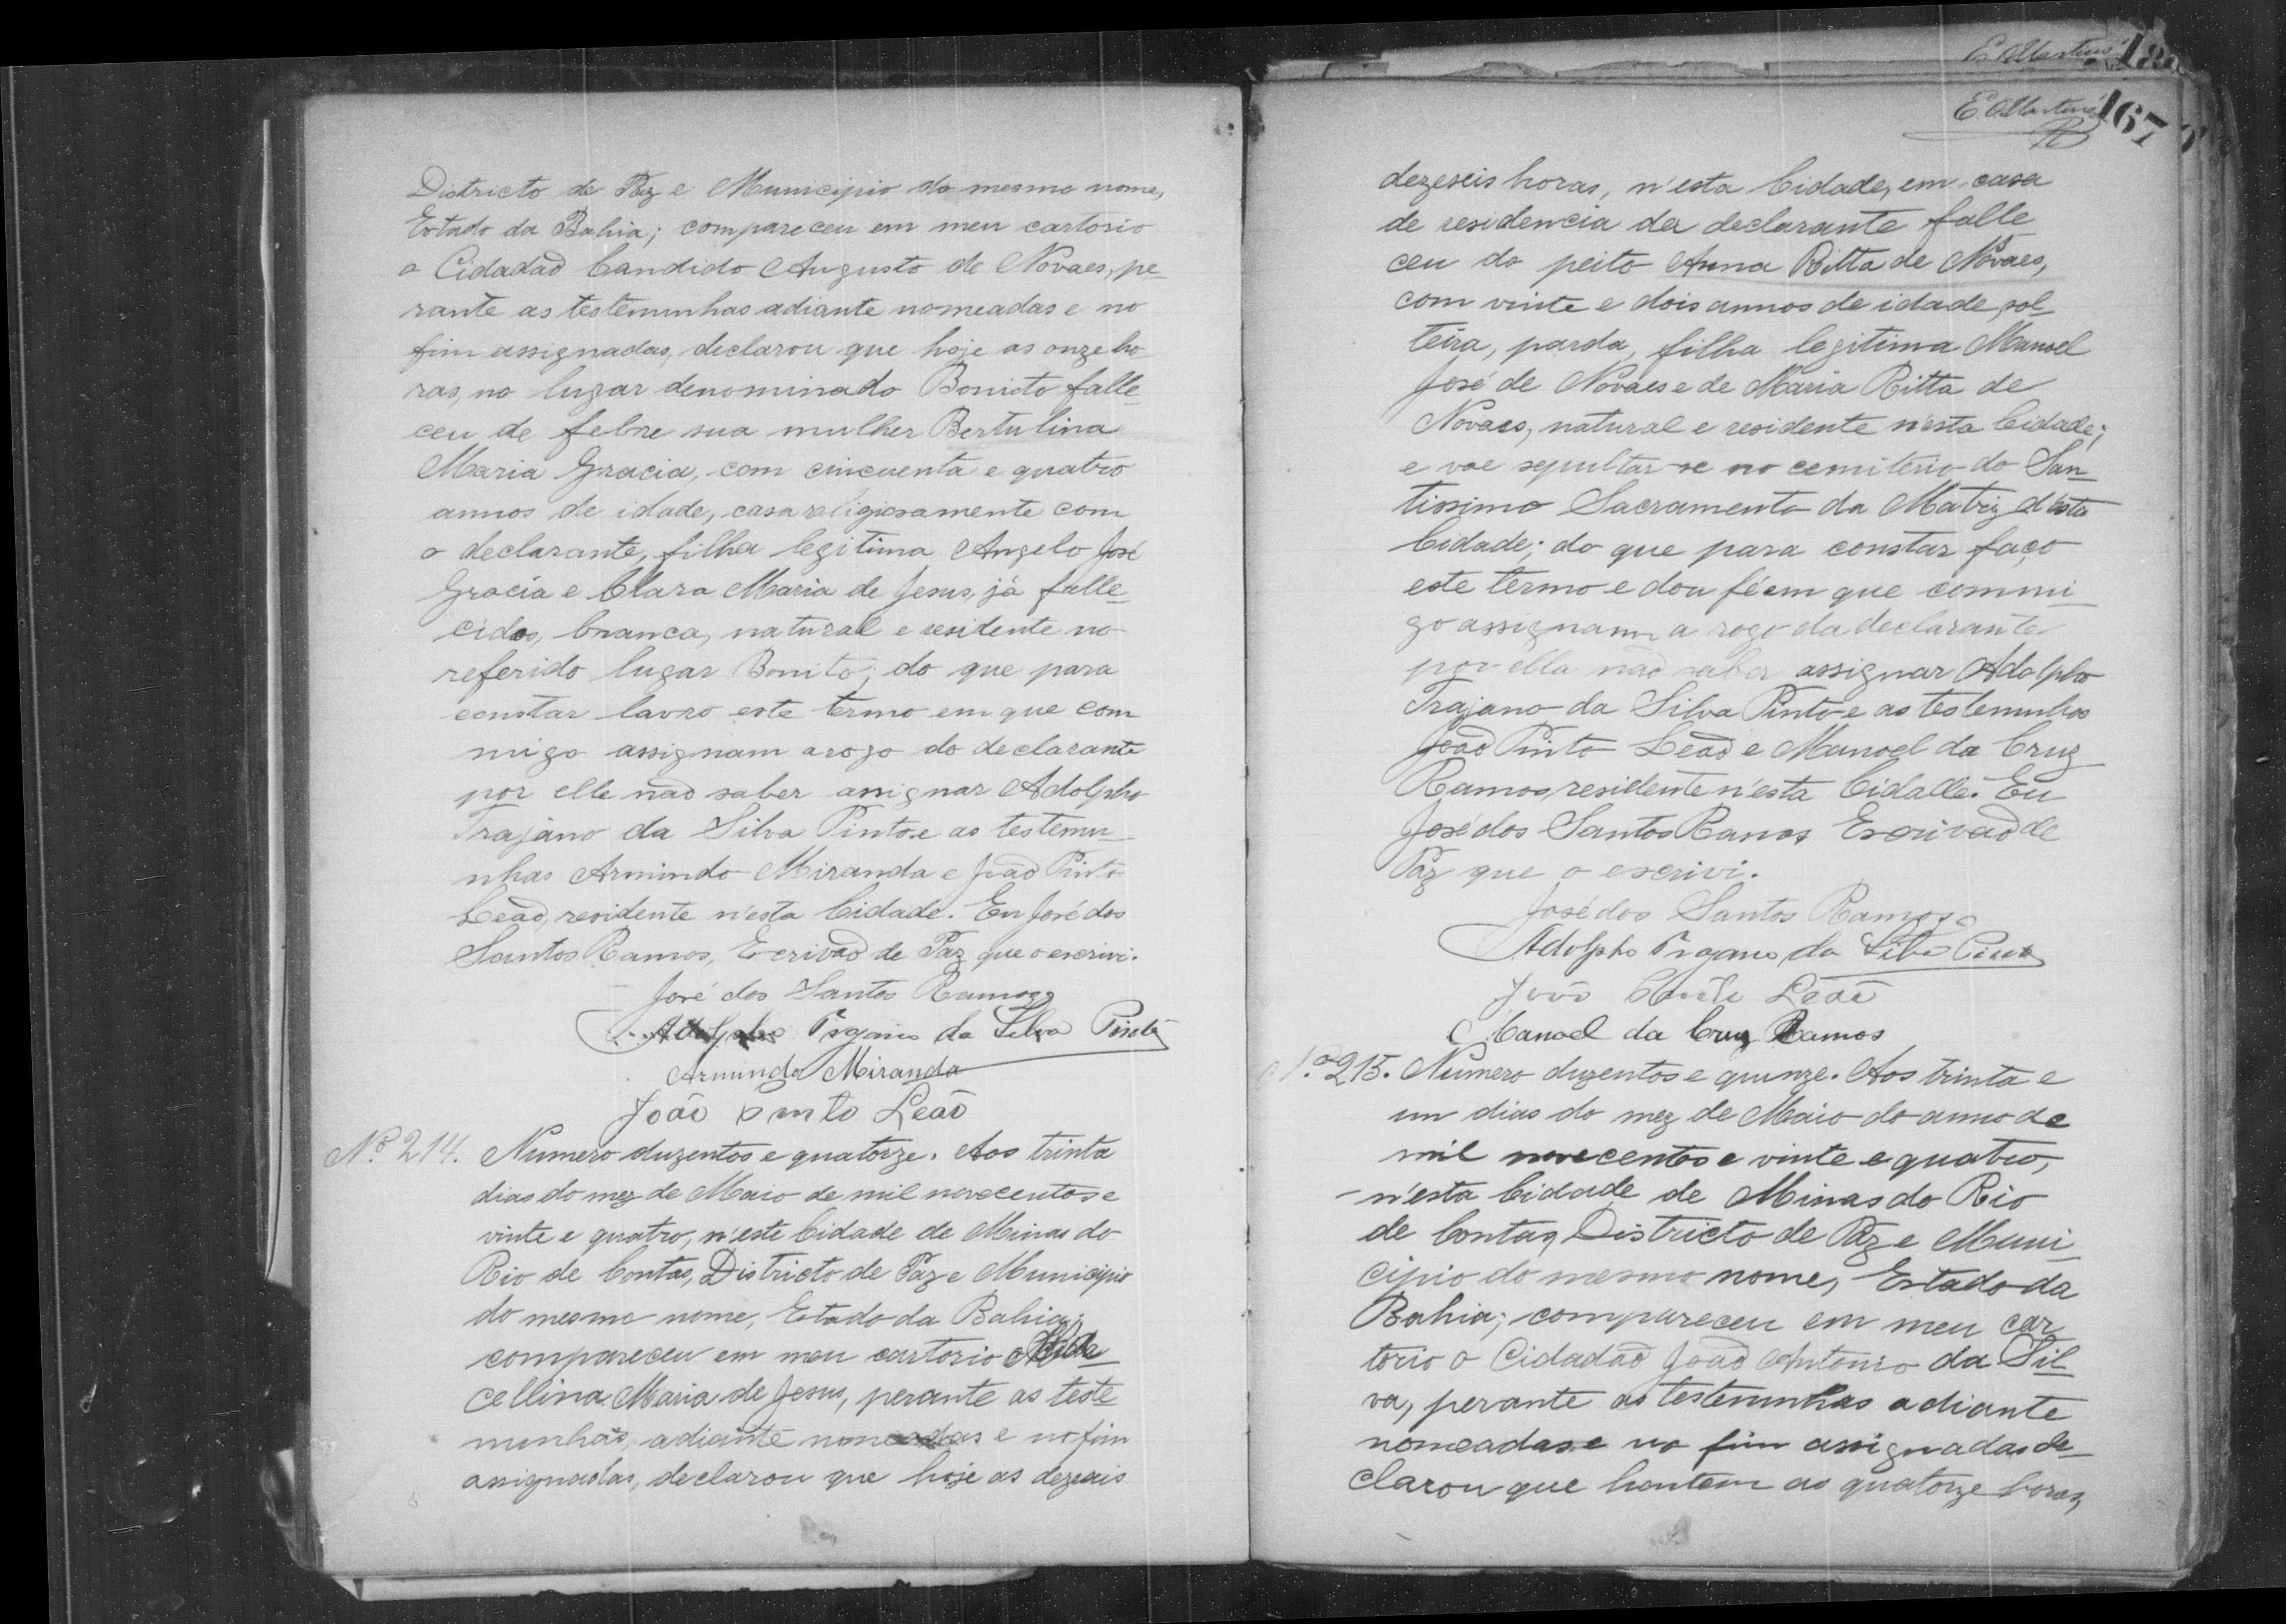 Districto de Paz e Municipio do mesmo nome,
Estado da Bahia; compareceu em meu cartorio
o Cidadaõ Candido Augusto de Novaes, pe-
rante as testemunhas adiante nomeadas e no
fim assignadas, declarou que hoje as onze ho
ras, no lugar denominado Bonicto falle-
ceu de febre sua mulher Bertulina
Maria Gracia, com cincuenta e quatro
annos de idade, casa religiosamente com
o declarante, filha legitima Angelo José
Gracia e Clara Maria de Jesus, já falle-
cidos, branca, natural e residente no
referido lugar Bonito; do que para
constar lavro este termo em que com
migo assignam a rogo do declarante
por elle naõ saber assignar Adolpho
Trajano da Silva Pinto e as testemu-
nhas Armindo Miranda e Joaõ Pinto
Leaõ, residente n'esta Cidade. Eu José dos
Santos Ramos, Ecrivaõ de Paz que o escrivi.
José dos Santos Ramos
Adolpho Trajano da Silva Pinto
Armindo Miranda
João Pinto Leão
Nº 214. Numero duzentos e quatorze. Aos trinta
dias do mez de Maio de mil novecentos e
vinte e quatro, n'este Cidade de Minas do
Rio de Contas, Districto de Paz e Municipio
do mesmo nome, Estado da Bahia;
compareceu em meu cartorio
cellina Maria de Jesus, perante as teste-
munhas, adiante nomeadas e no fim
assignadas, declarou que hoje as dezeais
E Martins
E Martins 167
dezeseis horas, n'esta Cidade, em casa
de residencia da declarante falle
ceu do peito Anna Ritta de Novaes,
com vinte e dois annos de idade, sol-
teira, parda, filha legitima Manoel
José de Novaes e de Maria Ritta de
Novaes, natural e residente n'esta Cidade;
e vae sepultar-se no cemiterio do San-
tissimo Sacramento da Matriz d'esta
Cidade; do que para constar faço
este termo e dou fé em que commi-
go assignam a rogo da declarante
por ella naõ saber assignar Adolpho
Trajano da Silva Pinto e as testemunhas
Joaõ Pinto Leaõ e Manoel da Cruz
Ramos, residente n'esta Cidade. Eu
José dos Santos Ramos Escrivaõ de
Paz que o escrivi.
José dos Santos Ramos
Adolpho Trajano da Silva Pinto
João Pinto Leão
Manoel da Cruz Ramos
Nº 215. Numero duzentos e quinze. Aos trinta e
um dias do mez de Maio do anno de
mil novecentos e vinte e quatro,
n'esta Cidade de Minas do Rio
de Contas, Districto de Paz e Muni-
cipio do mesmo nome, Estado da
Bahia; compareceu em meu car
torio o Cidadaõ Joaõ Antonio da Sil-
va, perante as testemunhas adiante
nomeadas e no fim assignadas de-
clarou que hontem as quatorze horas,